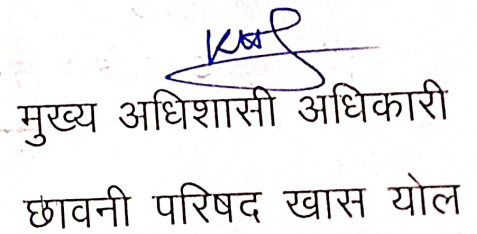 मुख्य अधिशासी अधिकारी
छावनी परिषद खास योल